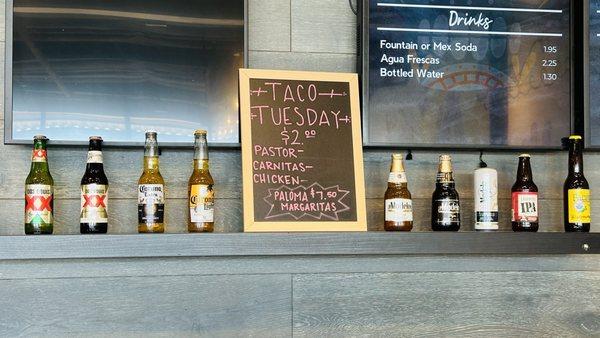 Drinks
Fountain or Mex Soda 1.95
Agua Frescas 2.25
Bottled Water 1.30
TACO
TUESDAY
$2.00
PASTOR-
CARNITAS-
CHICKEN-
PALOMA $7.50
MARGARITAS
XX
XX
Corona
Corona
Modelo
Modelo
IPA